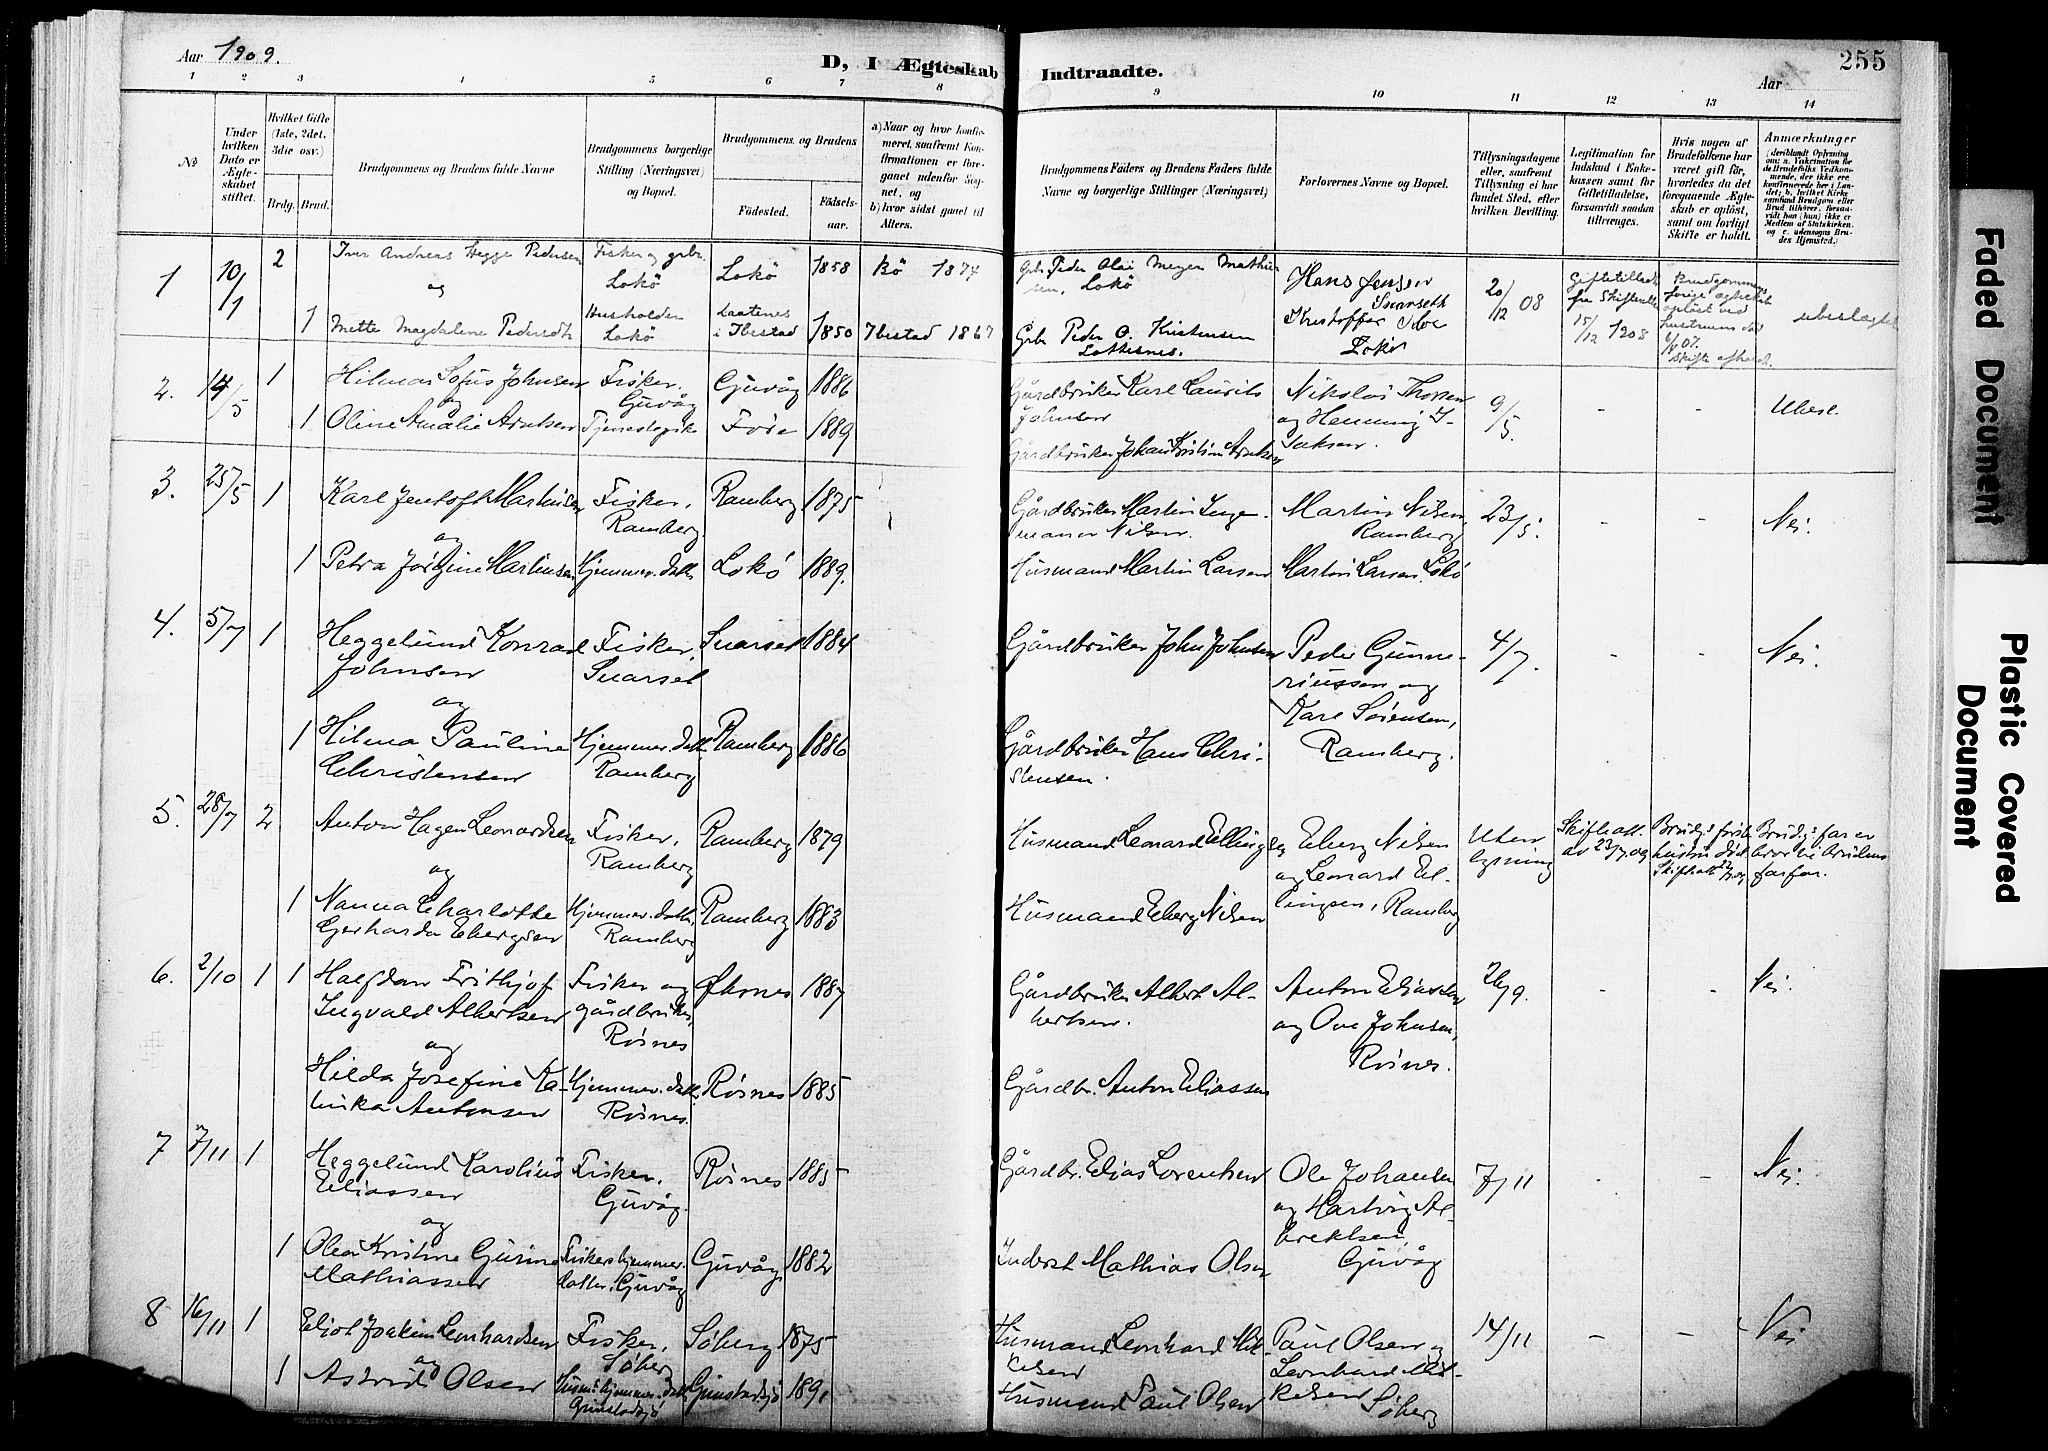 Aar 1909.
D, I Ægteskab Indtraadte.
Aar
255
1 2 3 4 5 6 7 8 9 10 11 12 13 14
No
Under hvilken Dato er Ægteskabet stiftet.
Hvilket Gifte (1ste, 2det, 3die osv.)
Brdg. Brud.
Brudgommens og Brudens fulde Navne
Brudgommens borgerlige Stilling (Næringsvei) og Bopæl.
Brudgommens og Brudens
Födested.
Födselsaar.
a) Naar og hvor konfirmeret, saafremt Konfirmationen er foregaaet udenfor Sognet, og
b) hvor sidst gaaet til Alters.
Brudgommens Faders og Brudens Faders fulde Navne og borgerlige Stillinger (Næringsvei)
Forlovernes Navne og Bopæl.
Tillysningsdagene eller, saafremt Tillysning ei har fundet Sted, efter hvilken Bevilling.
Legitimation for Indskud i Enkekassen samt for Giftetilladelse, forsaavidt saadan tiltrænges.
Hvis nogen af Brudefolkene har været gift før, hvorledes da det foregaaende Ægteskab er opløst, samt om lovligt Skifte er holdt.
Anmærkninger
(deriblandt Oplysning om: a. Vakcination for de Brudefolks Vedkommende, der ikke ere konfirmerede her i Landet; b. hvilket Kirkesamfund Brudgom eller Brud tilhører, forsaavidt han (hun) ikke er Medlem af Statskirken, og c. udensogns Brudes Hjemsted.)
1 10/1 2 Iver Andreas Hegge Pedersen Fisker og grbr. Lokö Lokö 1858 Bö 1874 Gbr Peder Olai Meyer Mathiesen, Lokö Hans Jensen Snarseth 20/12 08 Giftetillad. fra Skifteretten 15/12 1908
og
1 Mette Magdalene Pedersdtr Husholder Lokö i Ibestad 1850 Ibestad 1867 Gbr Peder O. Kristensen Kristoffer Lokö ubeslægtet
2. 14/5 1 Hilmar Sofus Johnsen Fisker. Gjuvåg Gjuvåg 1886 Gårdbruker Karl Laurits Johnsen Nikolai Thorsen og Henning Isaksen. 9/5. - - Ubesl.
og
1 Oline Amalie Arntsen Tjenestepike Føre 1889 Gårdbruker Johan Kristian Arntsen
3. 25/5 1 Karl Jentoft Martinsen Fisker, Ramberg Ramberg 1875 Gårdbruker Martin Ingemann Nilsen. Martin Nilsen, Ramberg 23/5. - - Nei.
og
1 Petra Jørgine Martinsen Hjemmev. datter Lokö 1889. Husmand Martin Larsen Martin Larsen, Lokö
4. 5/7 1 Heggelund Konrad Johnsen Fisker, Snarset Snarset 1884 Gårdbruker John Johnsen Peder Gunneriussen og Karl Sørensen, Ramberg. 4/7. - - Nei.
og
1 Hilma Pauline Christensen Hjemmev. datt. Ramberg Ramberg 1886 Gårdbruker Hans Christensen.
5. 28/7 2 Anton Hagen Leonardsen Fisker, Ramberg Ramberg 1879 Husmand Leonard Ellingsen Eberg Nilsen og Leonard Ellingsen, Ramberg Uten lysning Skifteatt. av 23/7.09 Brudg.s første hustru død Skifteatt 23/7 09 Brudg.s far er bror til brudens farfar.
og
1 Nanna Charlotte Gerharda Ebergsen Hjemmev. datt. Ramberg Ramberg 1883 Husmand Eberg Nilsen
6. 2/10 1 1 Halfdan Frithjof Ingvald Albertsen Fisker og gårdbruker, Røsnes Øksnes 1887 Gårdbruker Albert Albertsen. Anton Eliassen og Ove Johnsen, Røsnes. 26/9. - - Nei.
og
Hilda Josefine Katinka Antonsen Hjemmev. datt. Røsnes. Røsnes 1885 Gårdbr. Anton Eliassen
7 7/11 1 Heggelund Karolius Eliassen Fisker. Gjuvåg. Røsnes 1885 Gårdbr. Elias Lorentsen Ole Johansen og Hartvig Albrektsen, Gjuvåg 7/11 - - Nei.
og
1 Olea Kristine Gurine Mathiassen Fisker, hjemmev. datter, Gjuvåg Gjuvåg 1882 Inderst Mathias Olsen
8 16/11 1 Eliot Joakim Leonhardsen Fisker, Søberg Søberg 1875 Husmand Leonhard Mikkelsen Paul Olsen og Leonhard Mikkelsen Søberg 14/11 - - Nei
og
1 Astrid Olsen Husm. hjemmev. datt. Grimstadsjö Grimstadsjö 1891 Husmand Paul Olsen
Faded Document
Plastic Covered Document